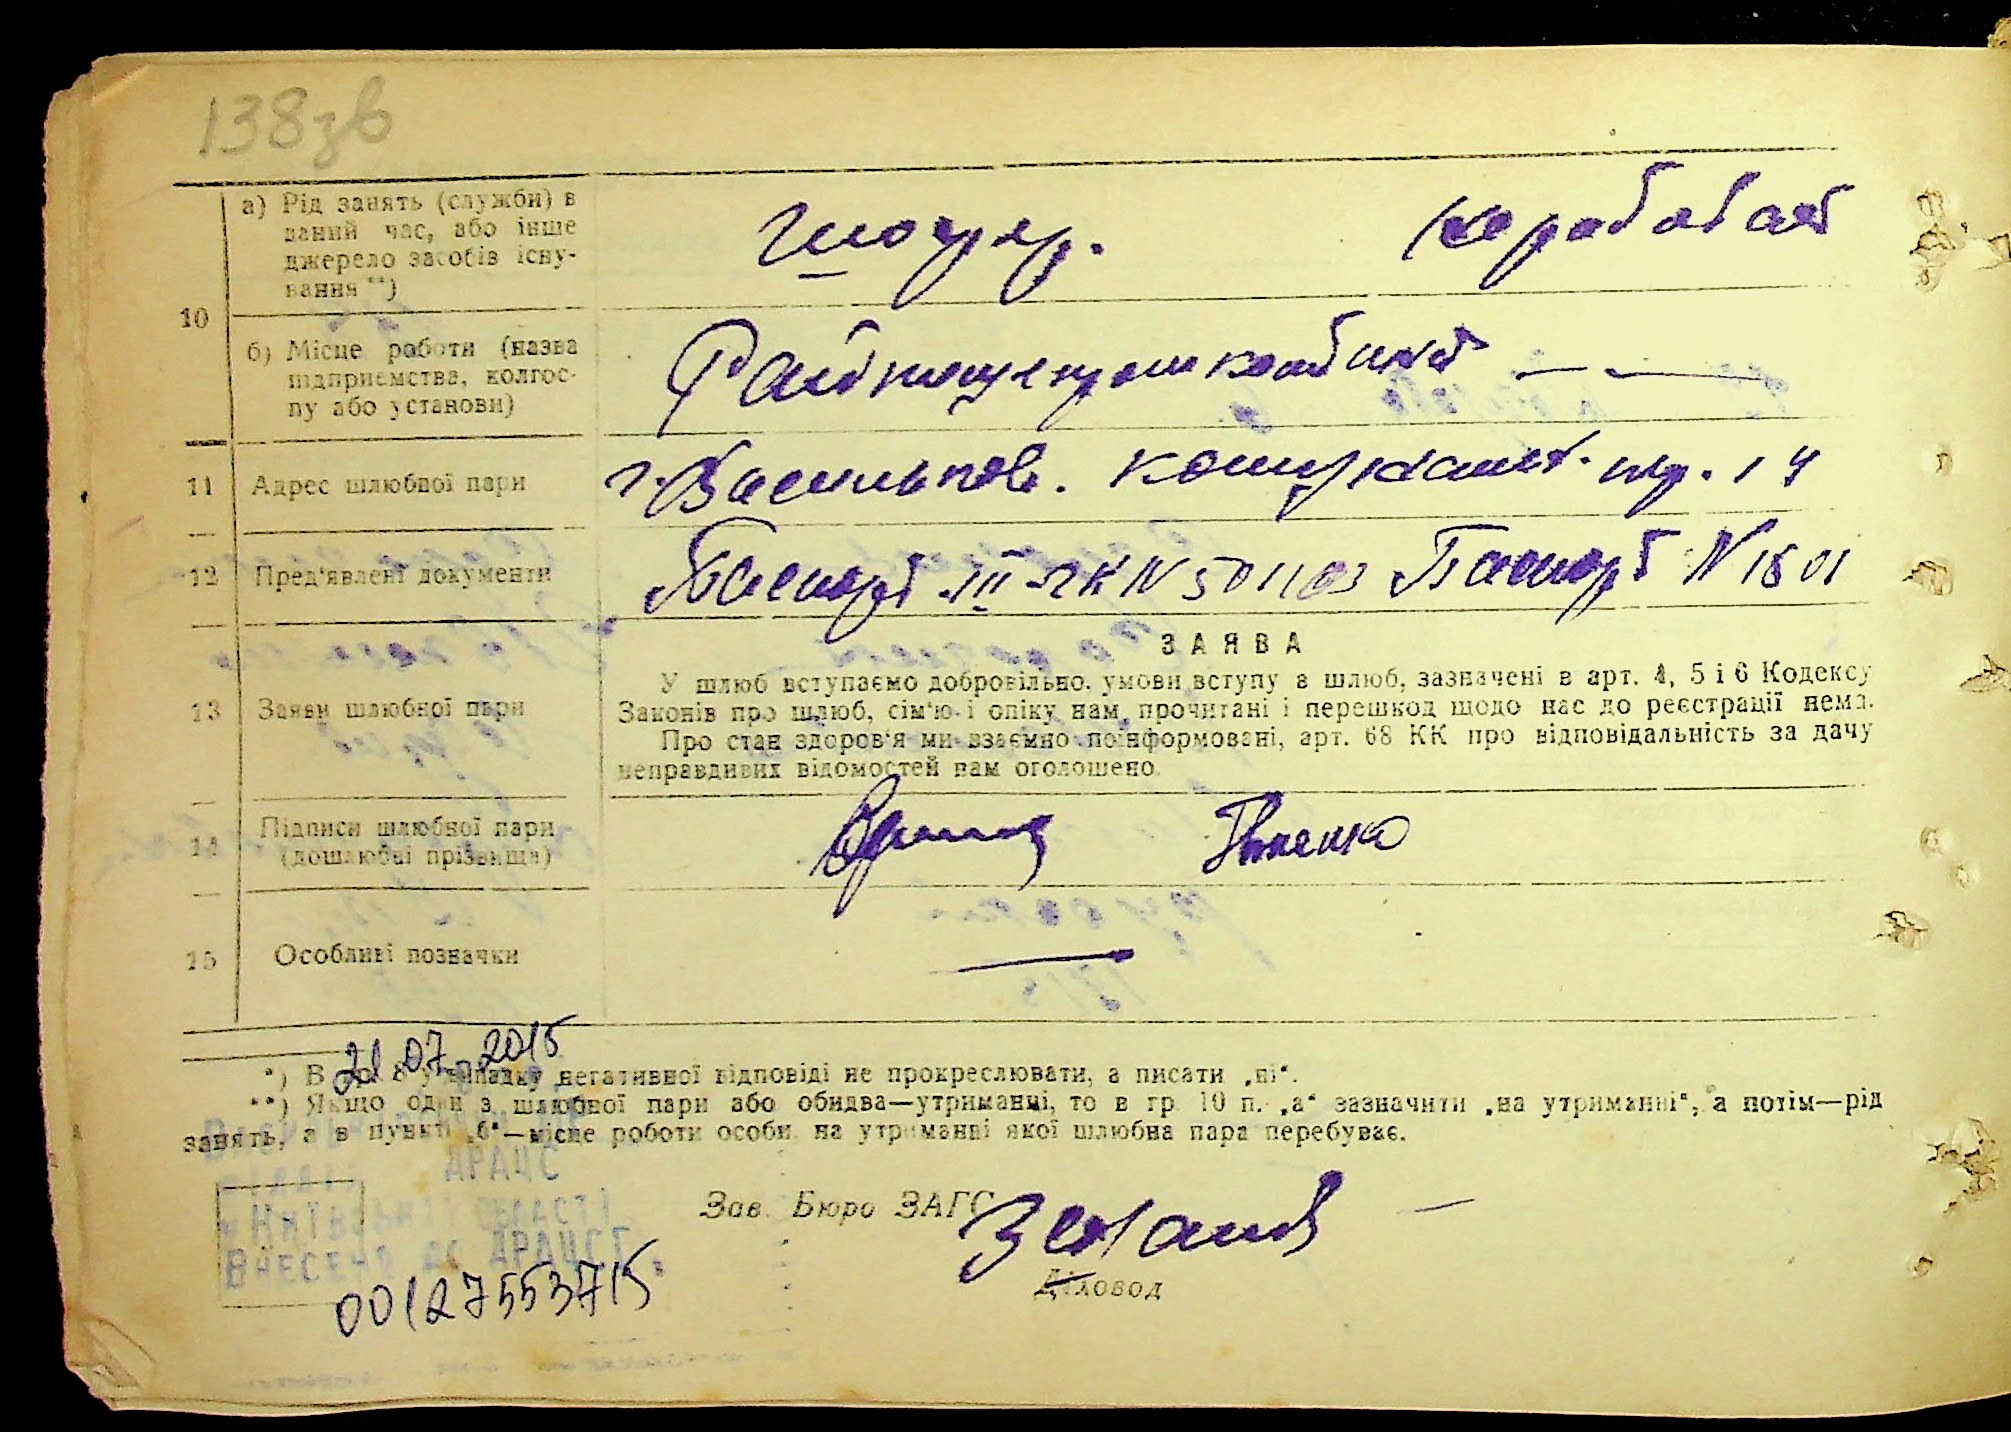 138зв
а) Рід занять (служби) в
даний час, або інше
джерело засобів існу-
вання **)
шофер.
не работает
10
б) Місце роботи (назва
підприємства, колгос-
пу або установи)
Райпищепромкомбинат — —
11 Адрес шлюбної пари
г. Васильков. Коммунист. 14
12 Пред'явлені документи
Паспорт III-ЯК N 501103 Паспорт N 1801
13 Заяви шлюбної пари
ЗАЯВА
У шлюб вступаємо добровільно. умови вступу в шлюб, зазначені в арт. 4, 5 і 6 Кодексу
Законів про шлюб, сім'ю і опіку нам прочитані і перешкод щодо нас до реєстрації нема.
Про стан здоров'я ми взаємно поінформовані, арт. 68 КК про відповідальність за дачу
неправдивих відомостей нам оголошено.
14 Підписи шлюбної пари
(дошлюбні прізвища)
15 Особливі позначки
21.07.2015
*) В гр. 8 у випадку негативної відповіді не прокреслювати, а писати „ні“.
**) Якщо один з шлюбної пари або обидва—утриманці, то в гр. 10 п. „а“ зазначити „на утриманні“, а потім—рід
занять, а в пункті „б“—місце роботи особи, на утриманні якої шлюбна пара перебуває.
ДРАЦС
КИЇВСЬКІЙ ОБЛАСТІ
ВНЕСЕНО ДО ДРАЦСГ
00127553715
Зав. Бюро ЗАГС
Діловод